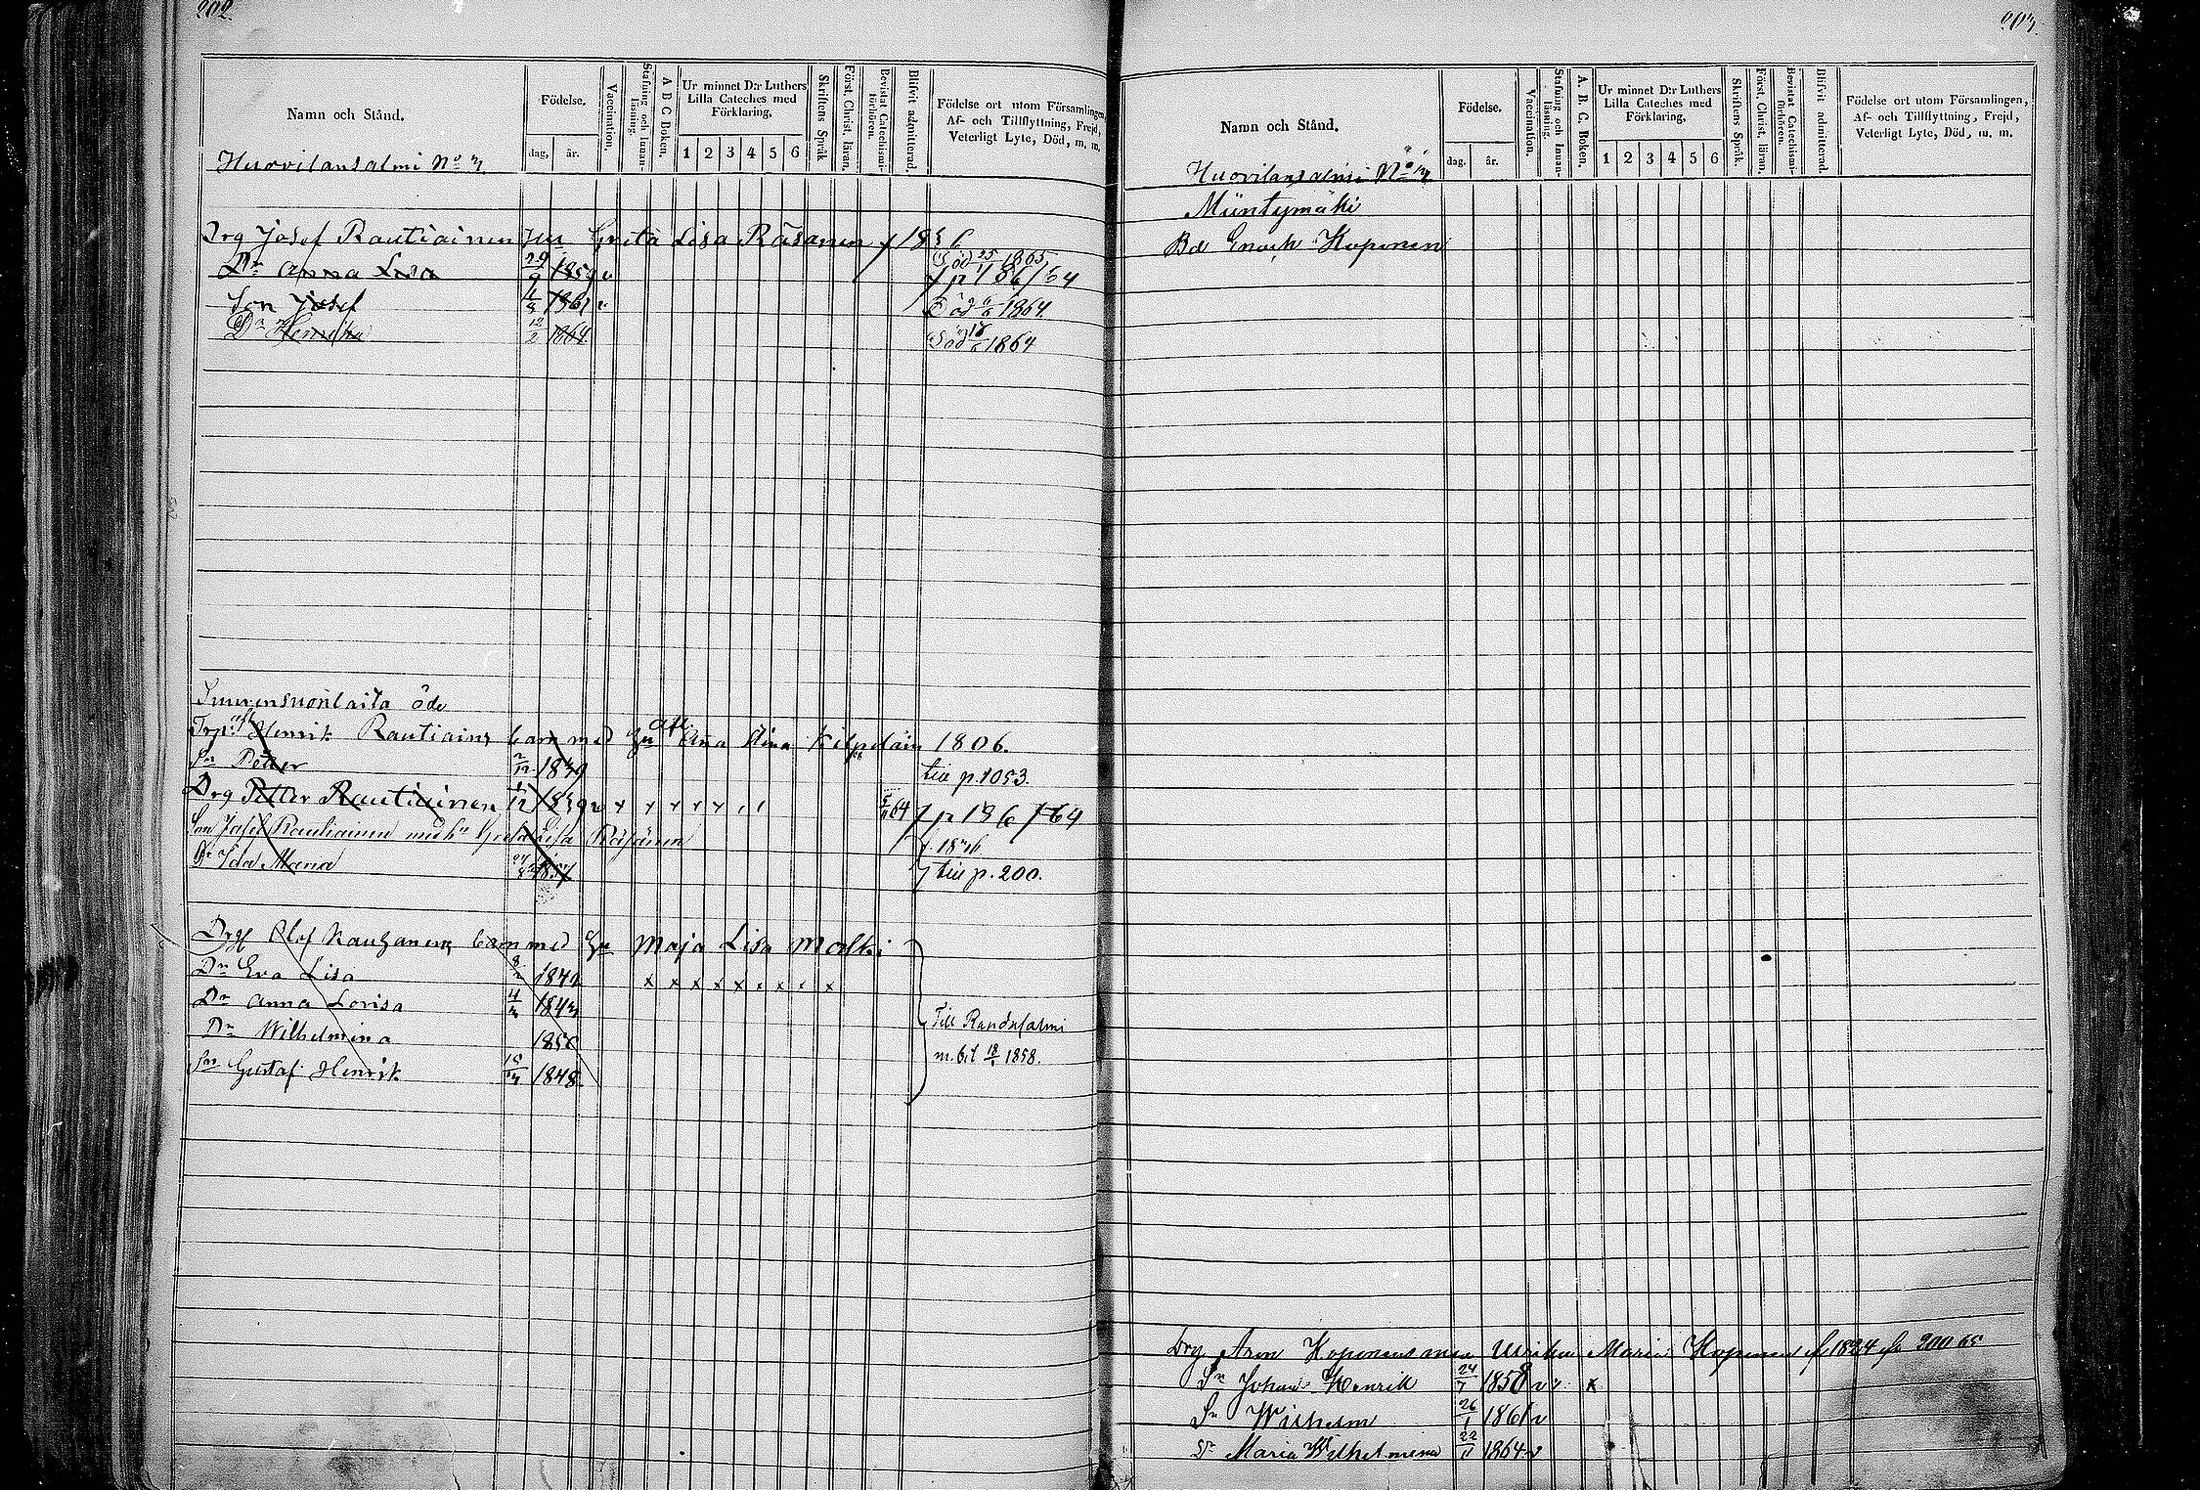 202.
Namn och Stånd.
Födelse.
dag, år.
Vaccination.
Stafning och Innanläsning.
A B C Boken.
Ur minnet D:r Luthers
Lilla Cateches med
Förklaring.
1 2 3 4 5 6
Skriftens Språk
Först. Christ. läran.
Bevistat Catechismiförhören.
Blifvit admitterad.
Födelse ort utom Församlingen,
Af- och Tillflyttning, Frejd,
Veterligt Lyte, Död, m. m.
Huovilansalmi No
Drg Josef Rautiainen Hu Greta Lisa Räsänen f 1836
Död 25 1865
Dr Anna Lisa 29/9 1859 v f p 186/64
Son Josef 1861 v Död 1864.
Dr Henrika 12/2 1864. Död 1864
öde
Henrik Rautiains barn med Hu Anna Stina 1806.
Sn Petter 2/12 1839 till p. 1053.
Drg Petter Rautiainen 1839 v x x x x x 64 f p 186/64
Son Josef Rautiainen med hu Greta Lisa Räsänen f. 1836
Dr Ida Maria 1857 till p. 200.
Drg Olof barn med Hu Maja Lisa
Dr Eva Lisa 1842 x x x x x x x x x
Dr Anna Lovisa 4/3 1843
Dr Wilhelmina 1850
Sn Gustaf Henrik 1848
Till Randasalmi
m. bet 1858.
203.
Namn och Stånd.
Födelse.
dag. år.
Vaccination.
Stafning och Innanläsning.
A. B. C. Boken.
Ur minnet D:r Luthers
Lilla Cateches med
Förklaring,
1 2 3 4 5 6
Skriftens Språk.
Först. Christ. läran.
Bevistat Catechismiförhören.
Blifvit admitterad.
Födelse ort utom Församlingen,
Af- och Tillflyttning, Frejd,
Veterligt Lyte, Död, m. m.
Huovilansalmi No
Mäntymäki
Bd Enoch Koponen
Drg Aron Koponens Maria Koponen f 1824 200/65
Sn Johan Henrik 24/7 1858 v x
Sn Wilhelm 26/1 1861 v
Dr Maria Wilhelmina 22/11 1864 v